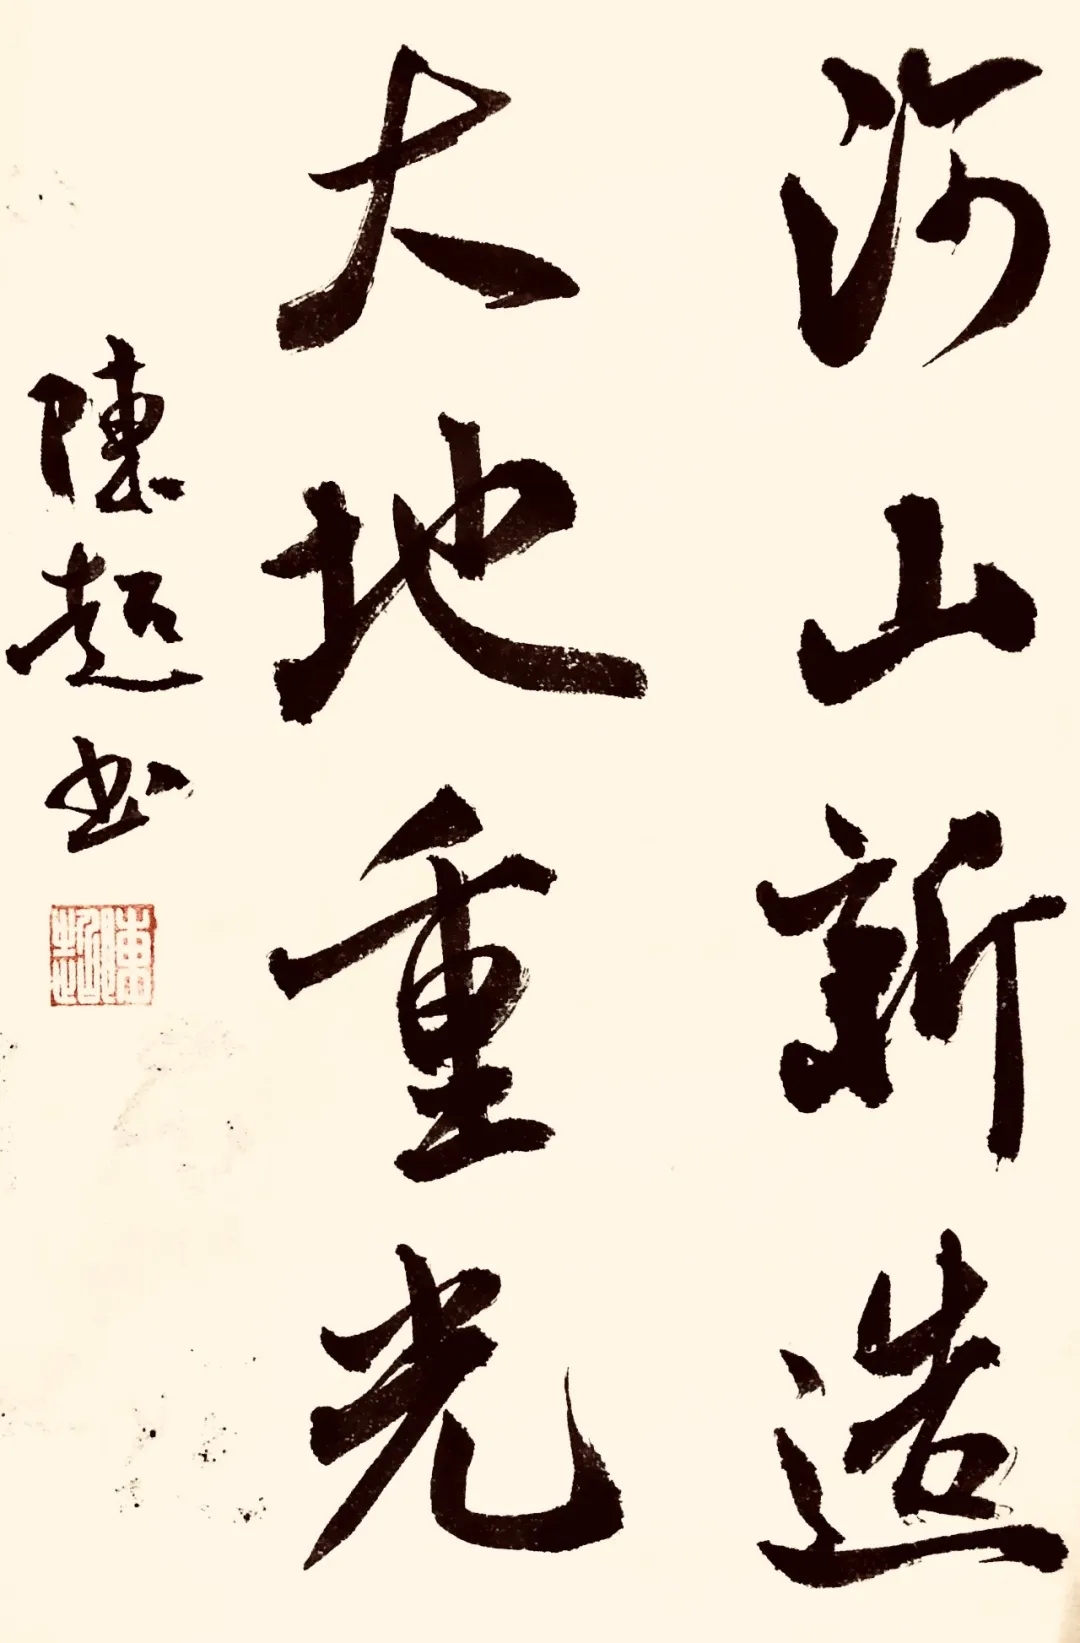 河山新造
大地重光
陳超书
陳超